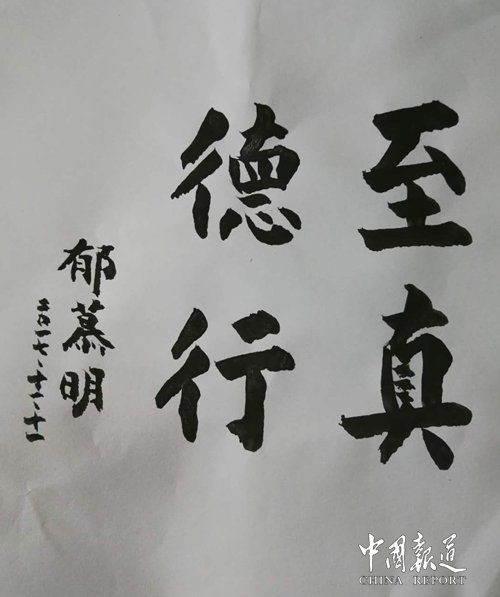 至真
德行
郁慕明
二〇一七、十一、十一
中國報道
CHINA REPORT